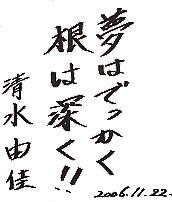 夢はでっかく
根は深く!!
清水由佳
2006.11.22.